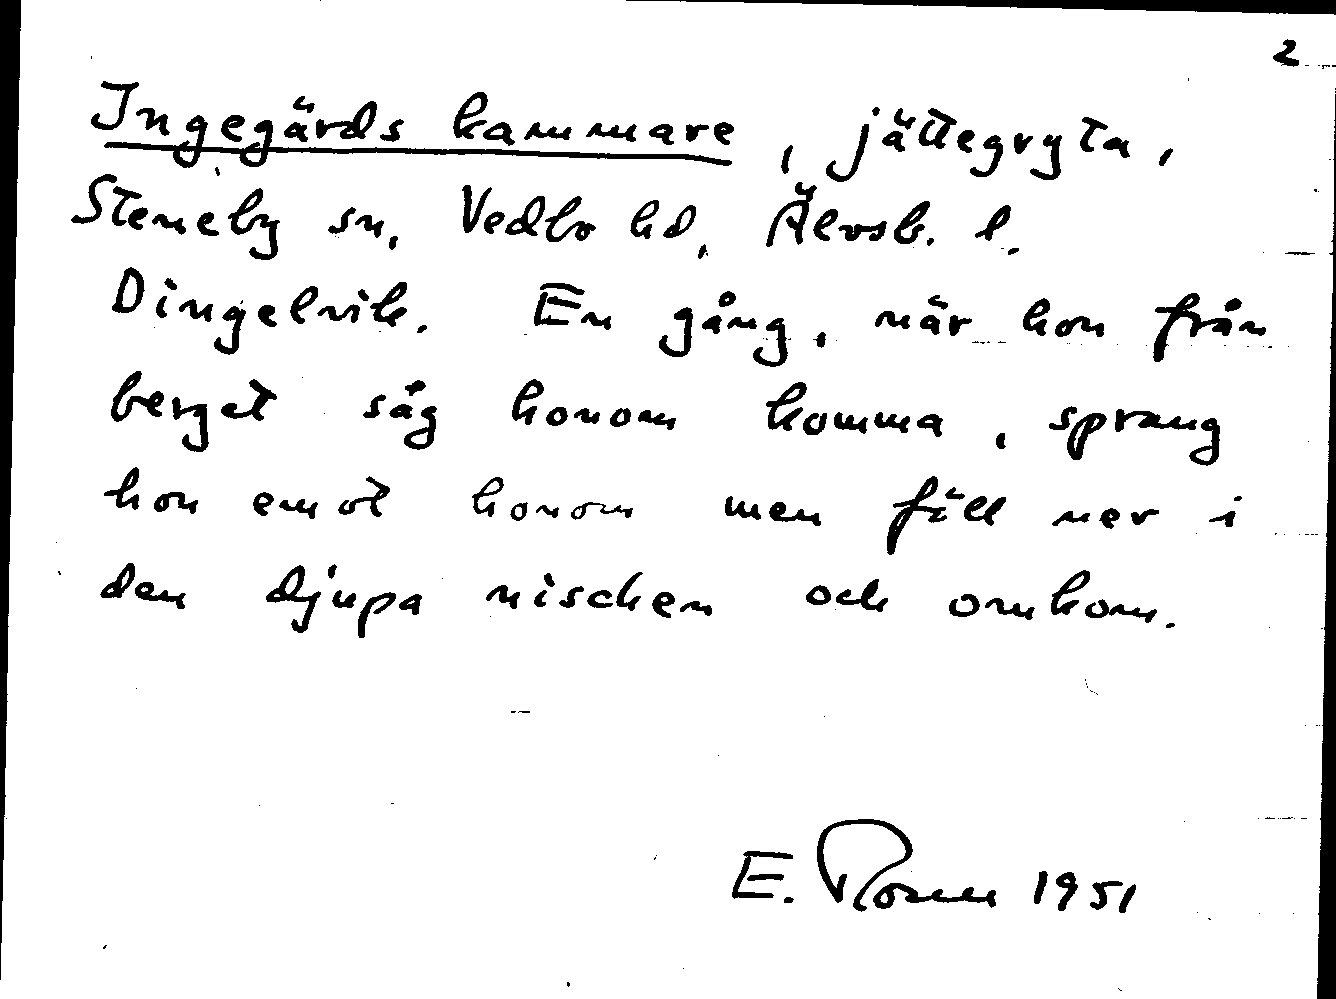 2
Ingegärds kammare, jättegryta,
Steneby sn, Vedbo hd, Älvsb. l.
Dingelvik. En gång, när hon från
berget såg honom komma, sprang
hon emot honom men föll ner i
den djupa nischen och omkom.
E. 1951